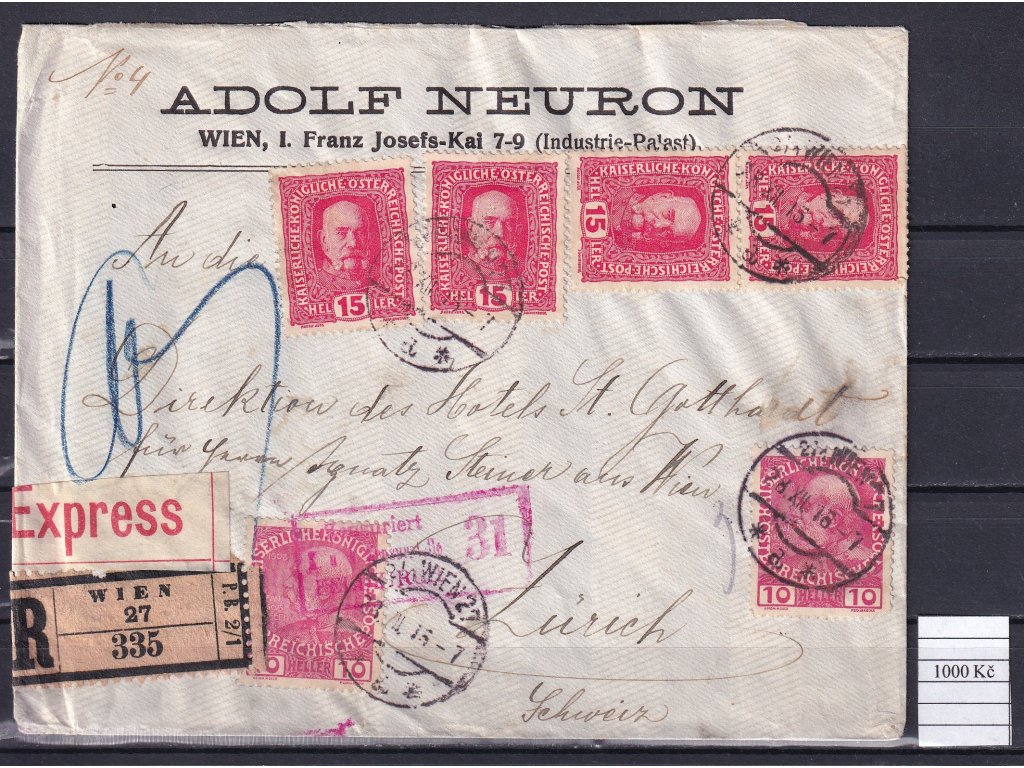 No 4
ADOLF NEURON
WIEN, I. Franz Josefs-Kai 7-9 (Industrie-Palast).
KAISERLICHE KÖNIGLICHE ÖSTERREICHISCHE POST
15
HELLER
KAISERLICHE KÖNIGLICHE ÖSTERREICHISCHE POST
15
HELLER
KAISERLICHE KÖNIGLICHE ÖSTERREICHISCHE POST
15
HELLER
KAISERLICHE KÖNIGLICHE ÖSTERREICHISCHE POST
15
WIEN
An die
Direktion des Hotels St. Gotthardt
für Herrn Ignatz Steiner aus Wien
Zürich
Schweiz
Express
R
WIEN
27
335
P.R. 2/1
31
2/1 WIEN 27
10
HELLER
10
2/1 WIEN
10 HELLER 10
1000 Kč